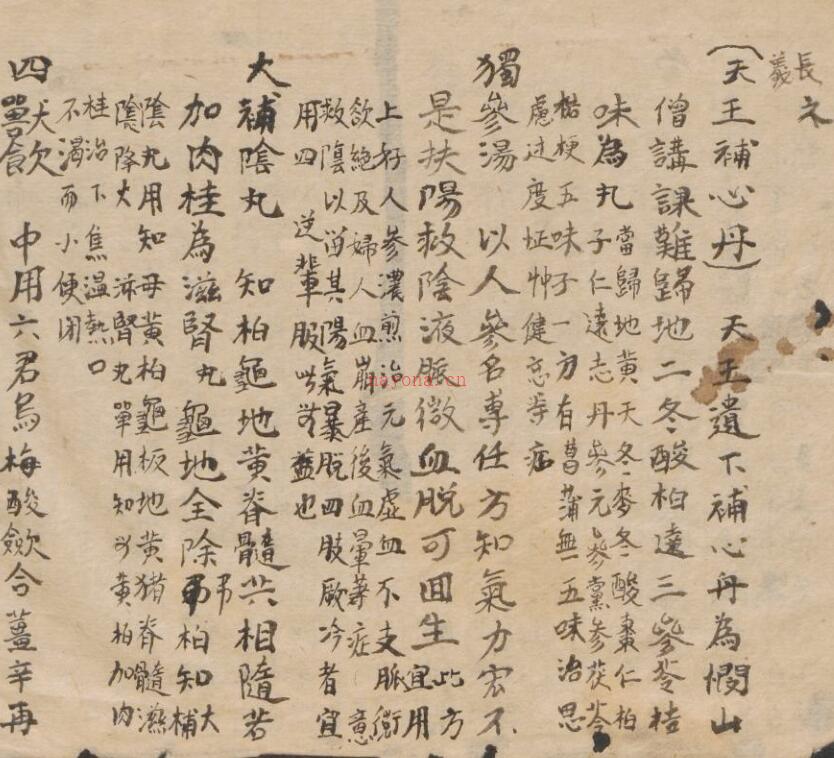 長
義
(天王補心丹)天王遺下補心丹為憫山
僧講課難歸地二冬酸柏遠三參苓桔
味為丸當歸地黃天冬麥冬酸棗仁柏
子仁遠志丹參元參黨參茯苓
桔梗五味子一方有菖蒲無五味治思
慮过度怔忡健忘等症
獨參湯 以人參名專任方知氣力宏不
是扶陽救陰液脈微血脫可回生此方
宜用
上好人參濃煎治元氣虛血不支脈微
欲絕及婦人血崩產後血暈等症意
救陰以留其陽氣暴脫四肢厥冷者宜
用四逆輩服此無益也
大補陰丸 知柏龜地黃脊髓共相隨若
加肉桂為滋腎丸龜地全除柏知大
補
陰丸用知母黃柏龜板地黃猪脊髓滋
陰降火滋腎丸單用知母黃柏加肉
桂治下焦濕熱口
不渴而小便閉
四獸飲 中用六君烏梅酸歛合薑辛再